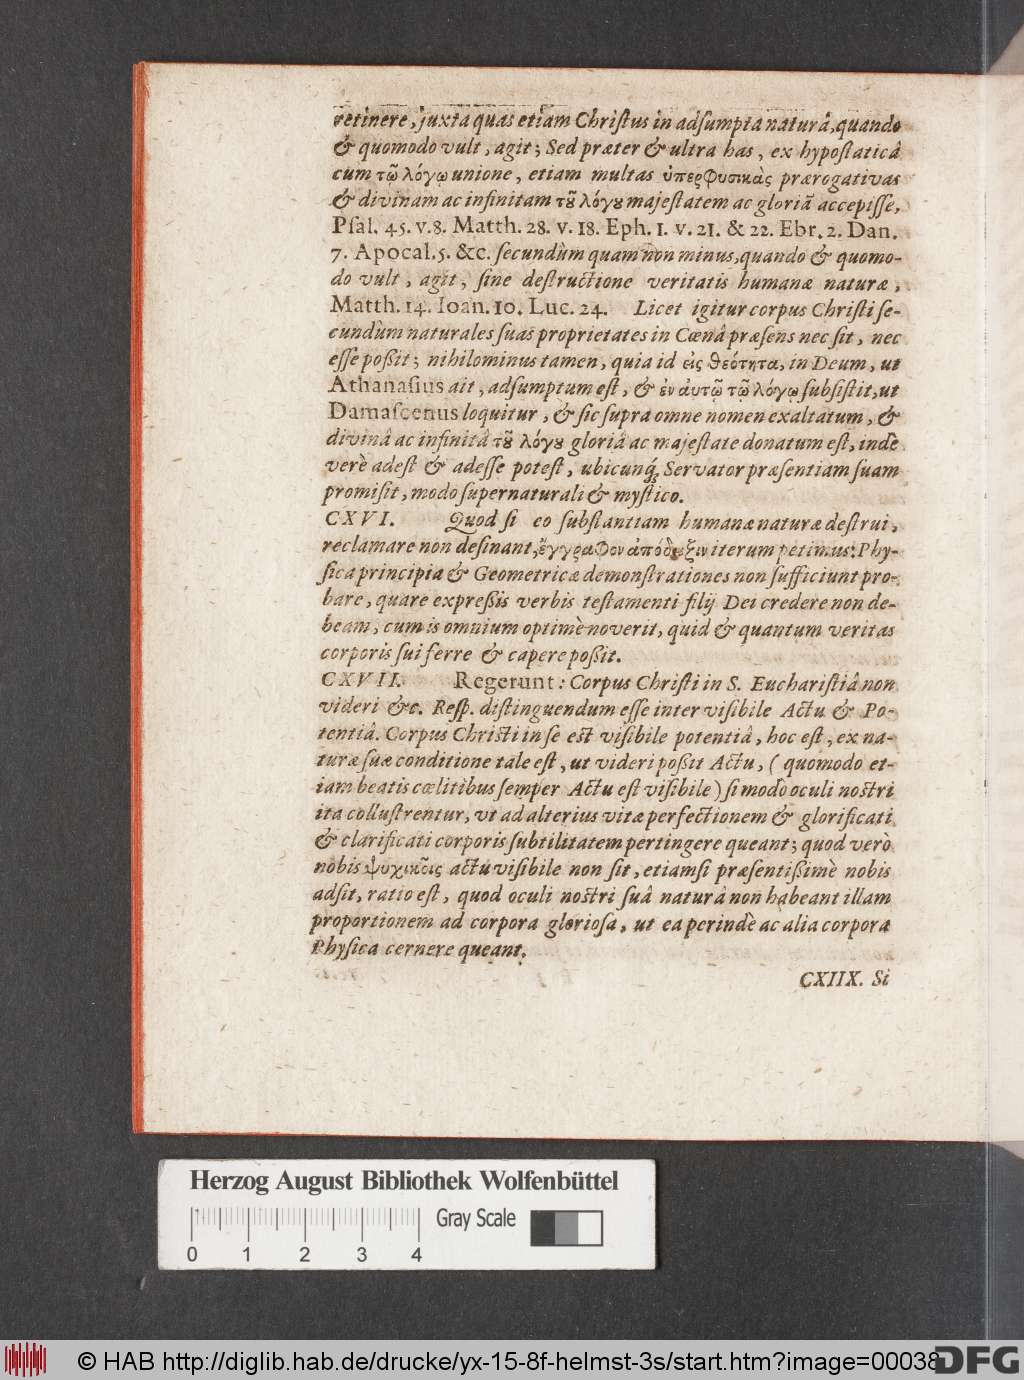 retinere, juxta quas etiam Christus in adsumpta naturâ, quando
& quomodo vult, agit; Sed præter & ultra has, ex hypostaticâ
cum τῷ λόγῳ unione, etiam multas ὑπερφυσικὰς prærogativas
& divinam ac infinitam τȣ͂ λόγȣ majestatem ac gloriã accepisse,
Psal. 45. v.8. Matth. 28. v. 18. Eph. 1. v. 21. & 22. Ebr. 2. Dan.
7. Apocal. 5. &c. secundùm quam non minus, quando & quomo-
do vult, agit, sine destructione veritatis humanæ naturæ,
Matth. 14. Ioan. 10. Luc. 24. Licet igitur corpus Christi se-
cundùm naturales suas proprietates in Cœnâ præsens nec sit, nec
esse poßit; nihilominus tamen, quia id εἰς θεότητα, in Deum, ut
Athanasius ait, adsumptum est, & ἐν αυτῷ τῷ λόγῳ subsistit, ut
Damascenus loquitur, & sic supra omne nomen exaltatum, &
divinâ ac infinitâ τȣ͂ λόγȣ gloriâ ac majestate donatum est, inde
verè adest & adesse potest, ubicunq; Servator præsentiam suam
promisit, modo supernaturali & mystico.
CXVI. Quod si eo substantiam humanæ naturæ destrui,
reclamare non desinant, ἔγγραφον ἀπόδειξιν iterum petimus: Phy-
sica principia & Geometricæ demonstrationes non sufficiunt pro-
bare, quare expreßis verbis testamenti filij Dei credere non de-
beam, cum is omnium optimè noverit, quid & quantum veritas
corporis sui ferre & capere poßit.
CXVII. Regerunt: Corpus Christi in S. Eucharistiâ non
videri &c. Resp. distinguendum esse inter visibile Actu & Po-
tentiâ. Corpus Christi in se est visibile potentiâ, hoc est, ex na-
turæ suæ conditione tale est, ut videri poßit Actu, ( quomodo et-
iam beatis cœlitibus semper Actu est visibile) si modò oculi nostri
ita collustrentur, ut ad alterius vitæ perfectionem & glorificati
& clarificati corporis subtilitatem pertingere queant; quod verò
nobis ψυχικοῖς actu visibile non sit, etiamsi præsentißimè nobis
adsit, ratio est, quod oculi nostri suâ naturâ non habeant illam
proportionem ad corpora gloriosa, ut ea perindè ac alia corpora
Physica cernere queant.
CXIIX. Si
Herzog August Bibliothek Wolfenbüttel
Gray Scale
0 1 2 3 4
© HAB http://diglib.hab.de/drucke/yx-15-8f-helmst-3s/start.htm?image=00038
DFG